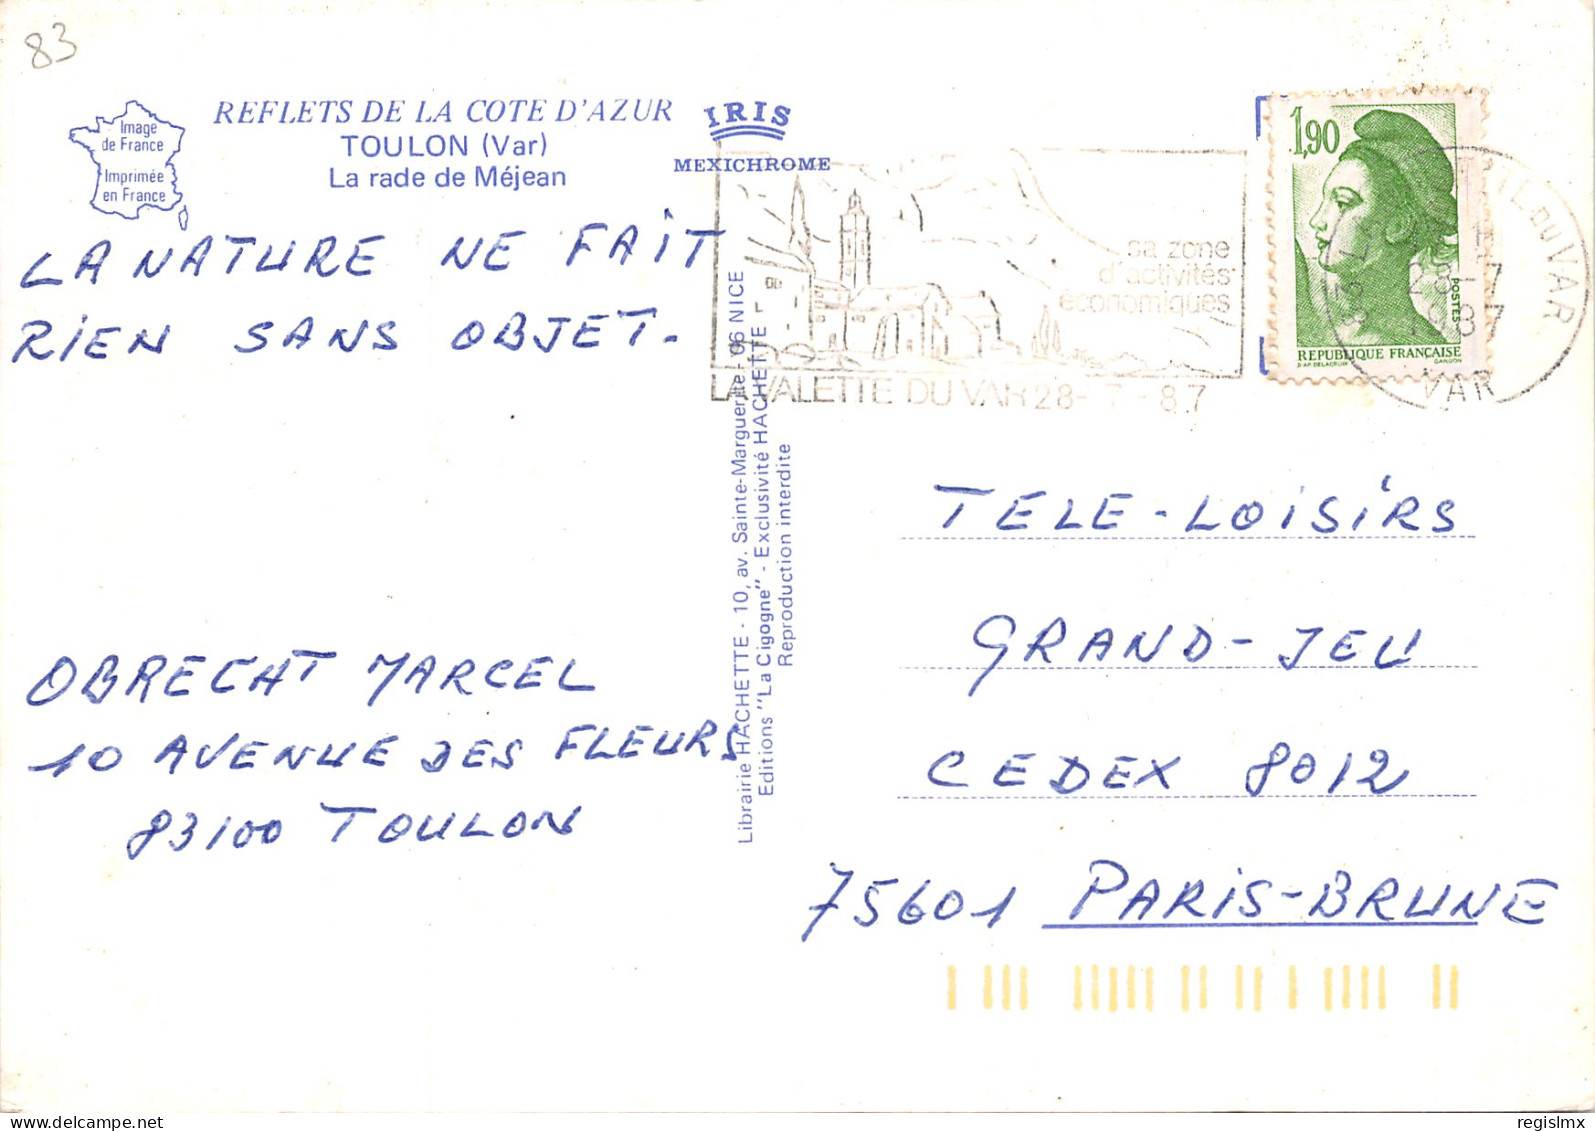 83
Image
de France
Imprimée
en France
REFLETS DE LA COTE D'AZUR
TOULON (Var)
La rade de Méjean
IRIS
MEXICHROME
LA NATURE NE FAIT
RIEN SANS OBJET.
OBRECHT MARCEL
10 AVENUE DES FLEURS
83100 TOULON
Librairie HACHETTE - 10, av. Sainte-Marguerite - 06 NICE
Editions "La Cigogne" - Exclusivité HACHETTE
Reproduction interdite
sa zone
d'activités
économiques
LA VALETTE DU VAR 28-7-87
1,90
POSTES
REPUBLIQUE FRANÇAISE
D'AP. DELACROIX GANDON
83 LA
DU VAR
28-7
1987
VAR
TELE-LOISIRS
GRAND-JEU
CEDEX 8012
75601 PARIS-BRUNE
delcampe.net
regislmx